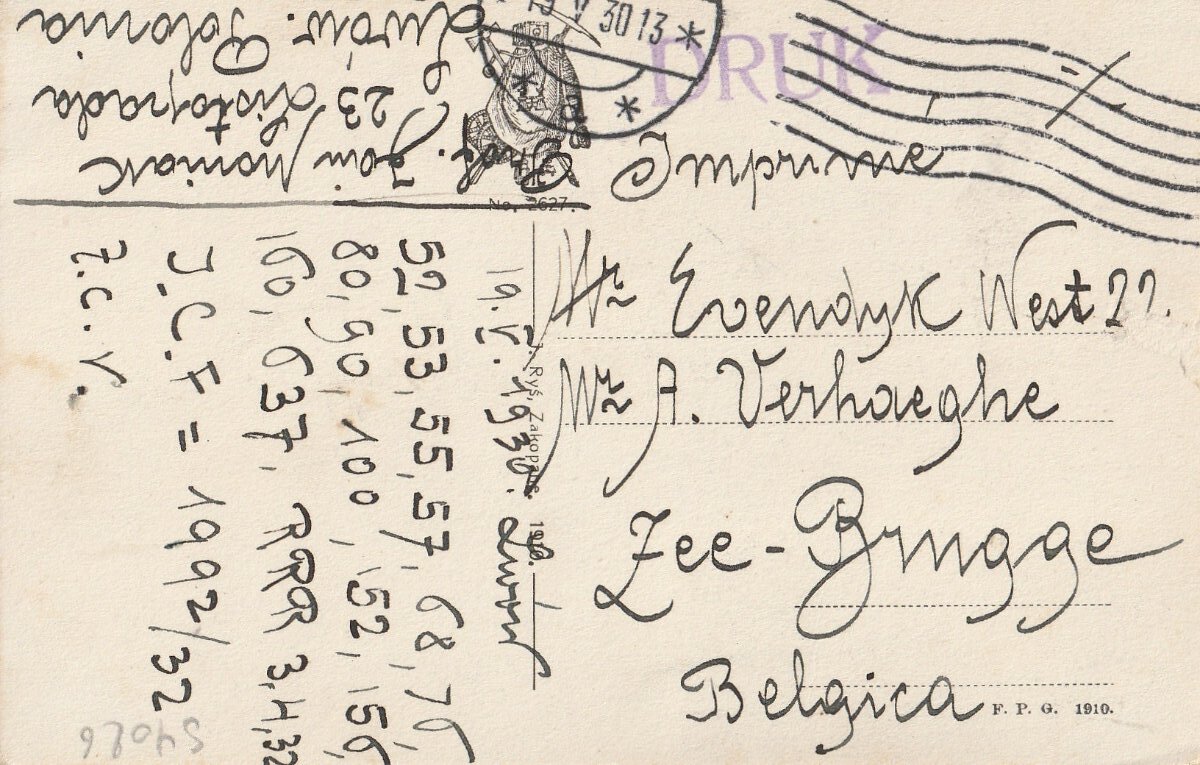 Lwów. Polonia
23 Listopada
19 V 30 13
DRUK
Imprime
No. 2627.
Mr Evendyk West 22.
Mr A. Verhaeghe
Zee-Brugge
Belgica
F. P. G. 1910.
Ryś, Zakopane. 1910.
19. V. 1930. Lwów
52, 53, 55, 57, 68, 76,
80, 90, 100, 152, 156,
160, 637, RRR 3,4,32
J.C.F = 1992/32
7.c.v.